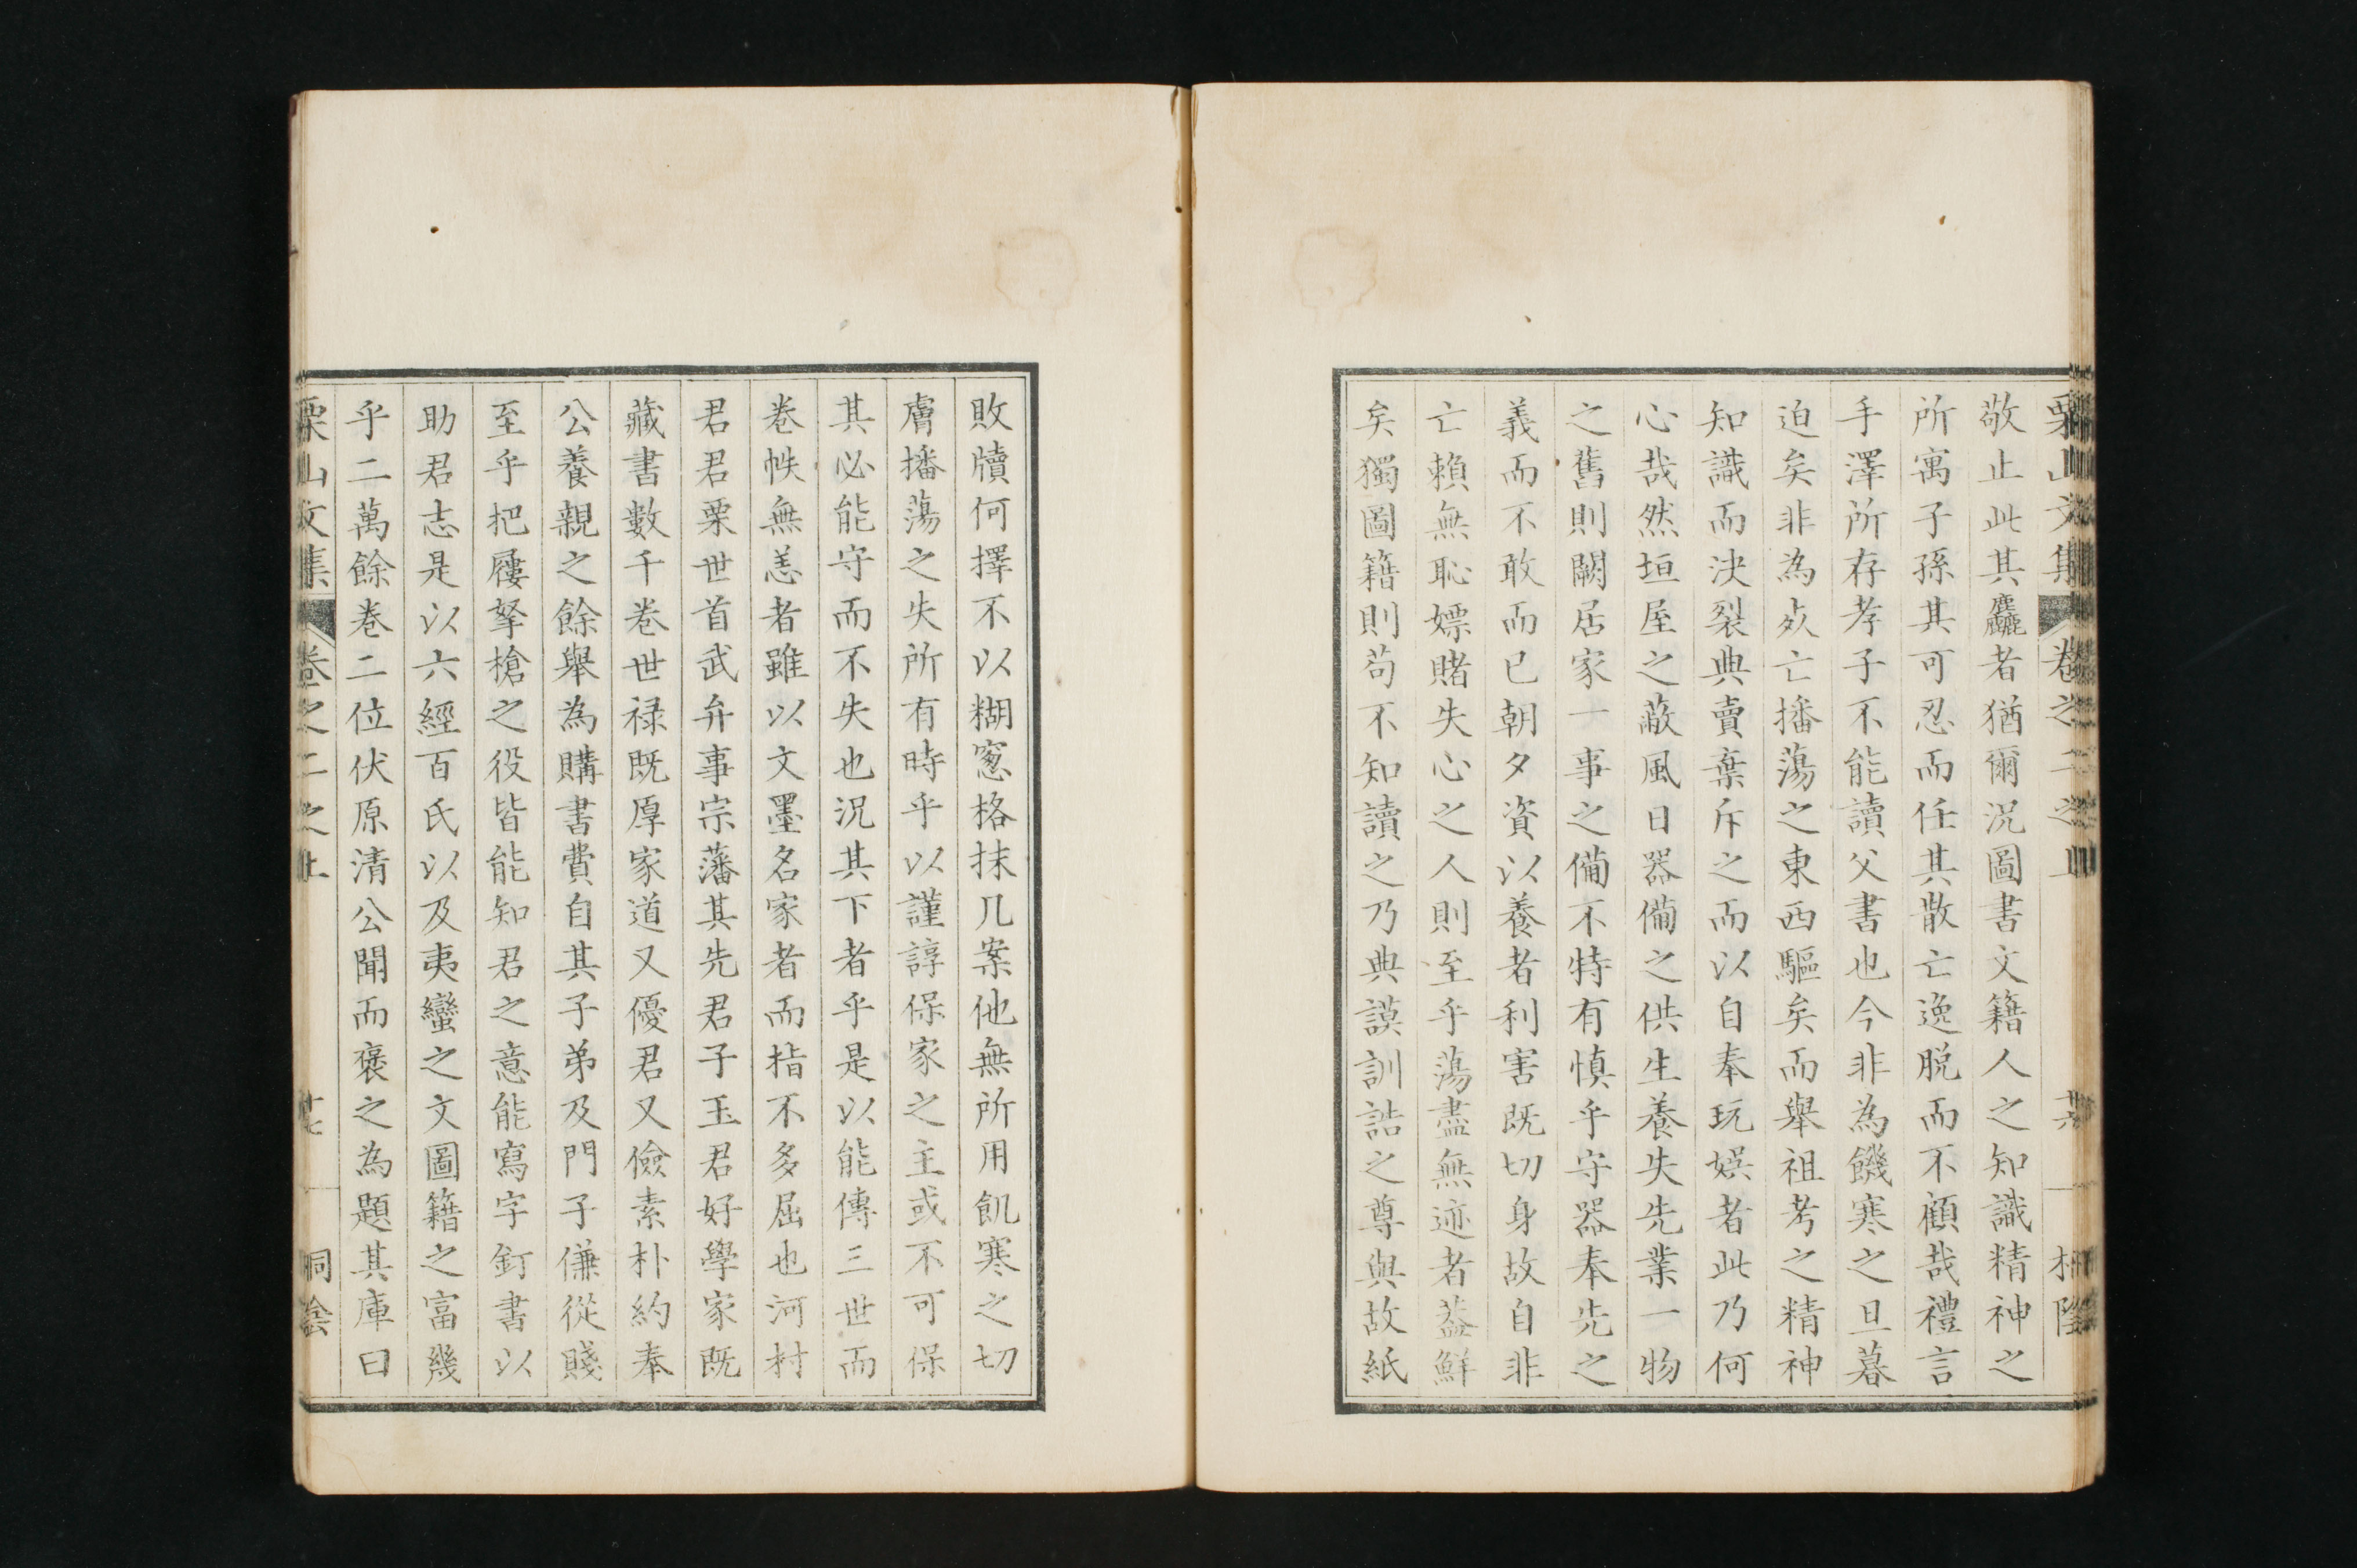 栗山文集 卷之二之上 廿六 桐陰
敬止此其麤者猶爾況圖書文籍人之知識精神之
所寓子孫其可忍而任其散亡逸脱而不顧哉禮言
手澤所存孝子不能讀父書也今非為饑寒之旦暮
迫矣非為夊亡播蕩之東西驅矣而舉祖考之精神
知識而決裂典賣棄斥之而以自奉玩娯者此乃何
心哉然垣屋之蔽風日器備之供生養失先業一物
之舊則闕居家一事之備不特有慎乎守器奉先之
義而不敢而已朝夕資以養者利害既切身故自非
亡賴無恥嫖賭失心之人則至乎蕩盡無迹者葢鮮
矣獨圖籍則苟不知讀之乃典謨訓誥之尊與故紙
敗牘何擇不以糊窓格抹几案他無所用飢寒之切
膚播蕩之失所有時乎以謹諄保家之主或不可保
其必能守而不失也況其下者乎是以能傳三世而
卷帙無恙者雖以文墨名家者而指不多屈也河村
君君栗世首武弁事宗藩其先君子玉君好學家既
藏書數千卷世禄既厚家道又優君又儉素朴約奉
公養親之餘舉為購書費自其子弟及門子傔從賤
至乎把屨拏槍之役皆能知君之意能寫字釘書以
助君志是以六經百氏以及夷蠻之文圖籍之富幾
乎二萬餘卷二位伏原清公聞而褒之為題其庫曰
栗山文集 卷之二之上 廿七 桐陰